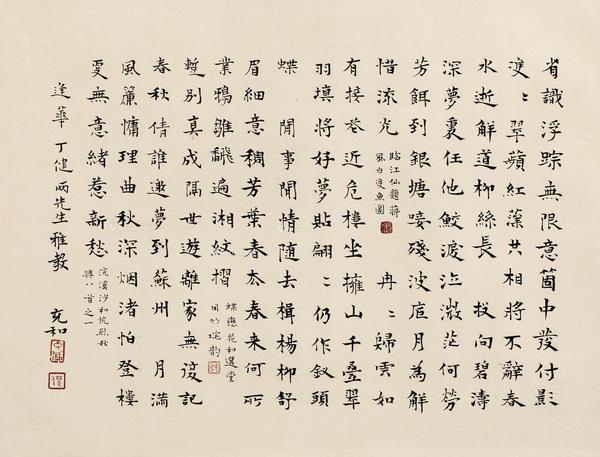 省識浮踪無限意箇中發付影
雙〻翠蘋紅藻共相將不辭春
水逝解道柳絲長 投向碧濤
深夢裏任他鮫淚泣微茫何勞
芳餌到銀塘唼殘波底月為解
惜流光 臨江仙題蔣風白雙魚圖 冉〻歸雲如
有接卷近危樓坐擁山千疊翠
羽填將好夢貼翩〻仍作釵頭
蝶 閒事閒情隨去楫楊柳舒
眉細意稠芳葉春去春來何所
業鴉雛飜遍湘紋摺 蝶戀花和選堂用竹垞韵
蹔別真成隔世遊離家無復記
春秋倩誰邀夢到蘇州 月滿
風簾慵理曲秋深烟渚怕登樓
更無意緒惹新愁 浣溪沙和忱烈秋興八首之一
逢華 丁健 兩先生雅教 充和